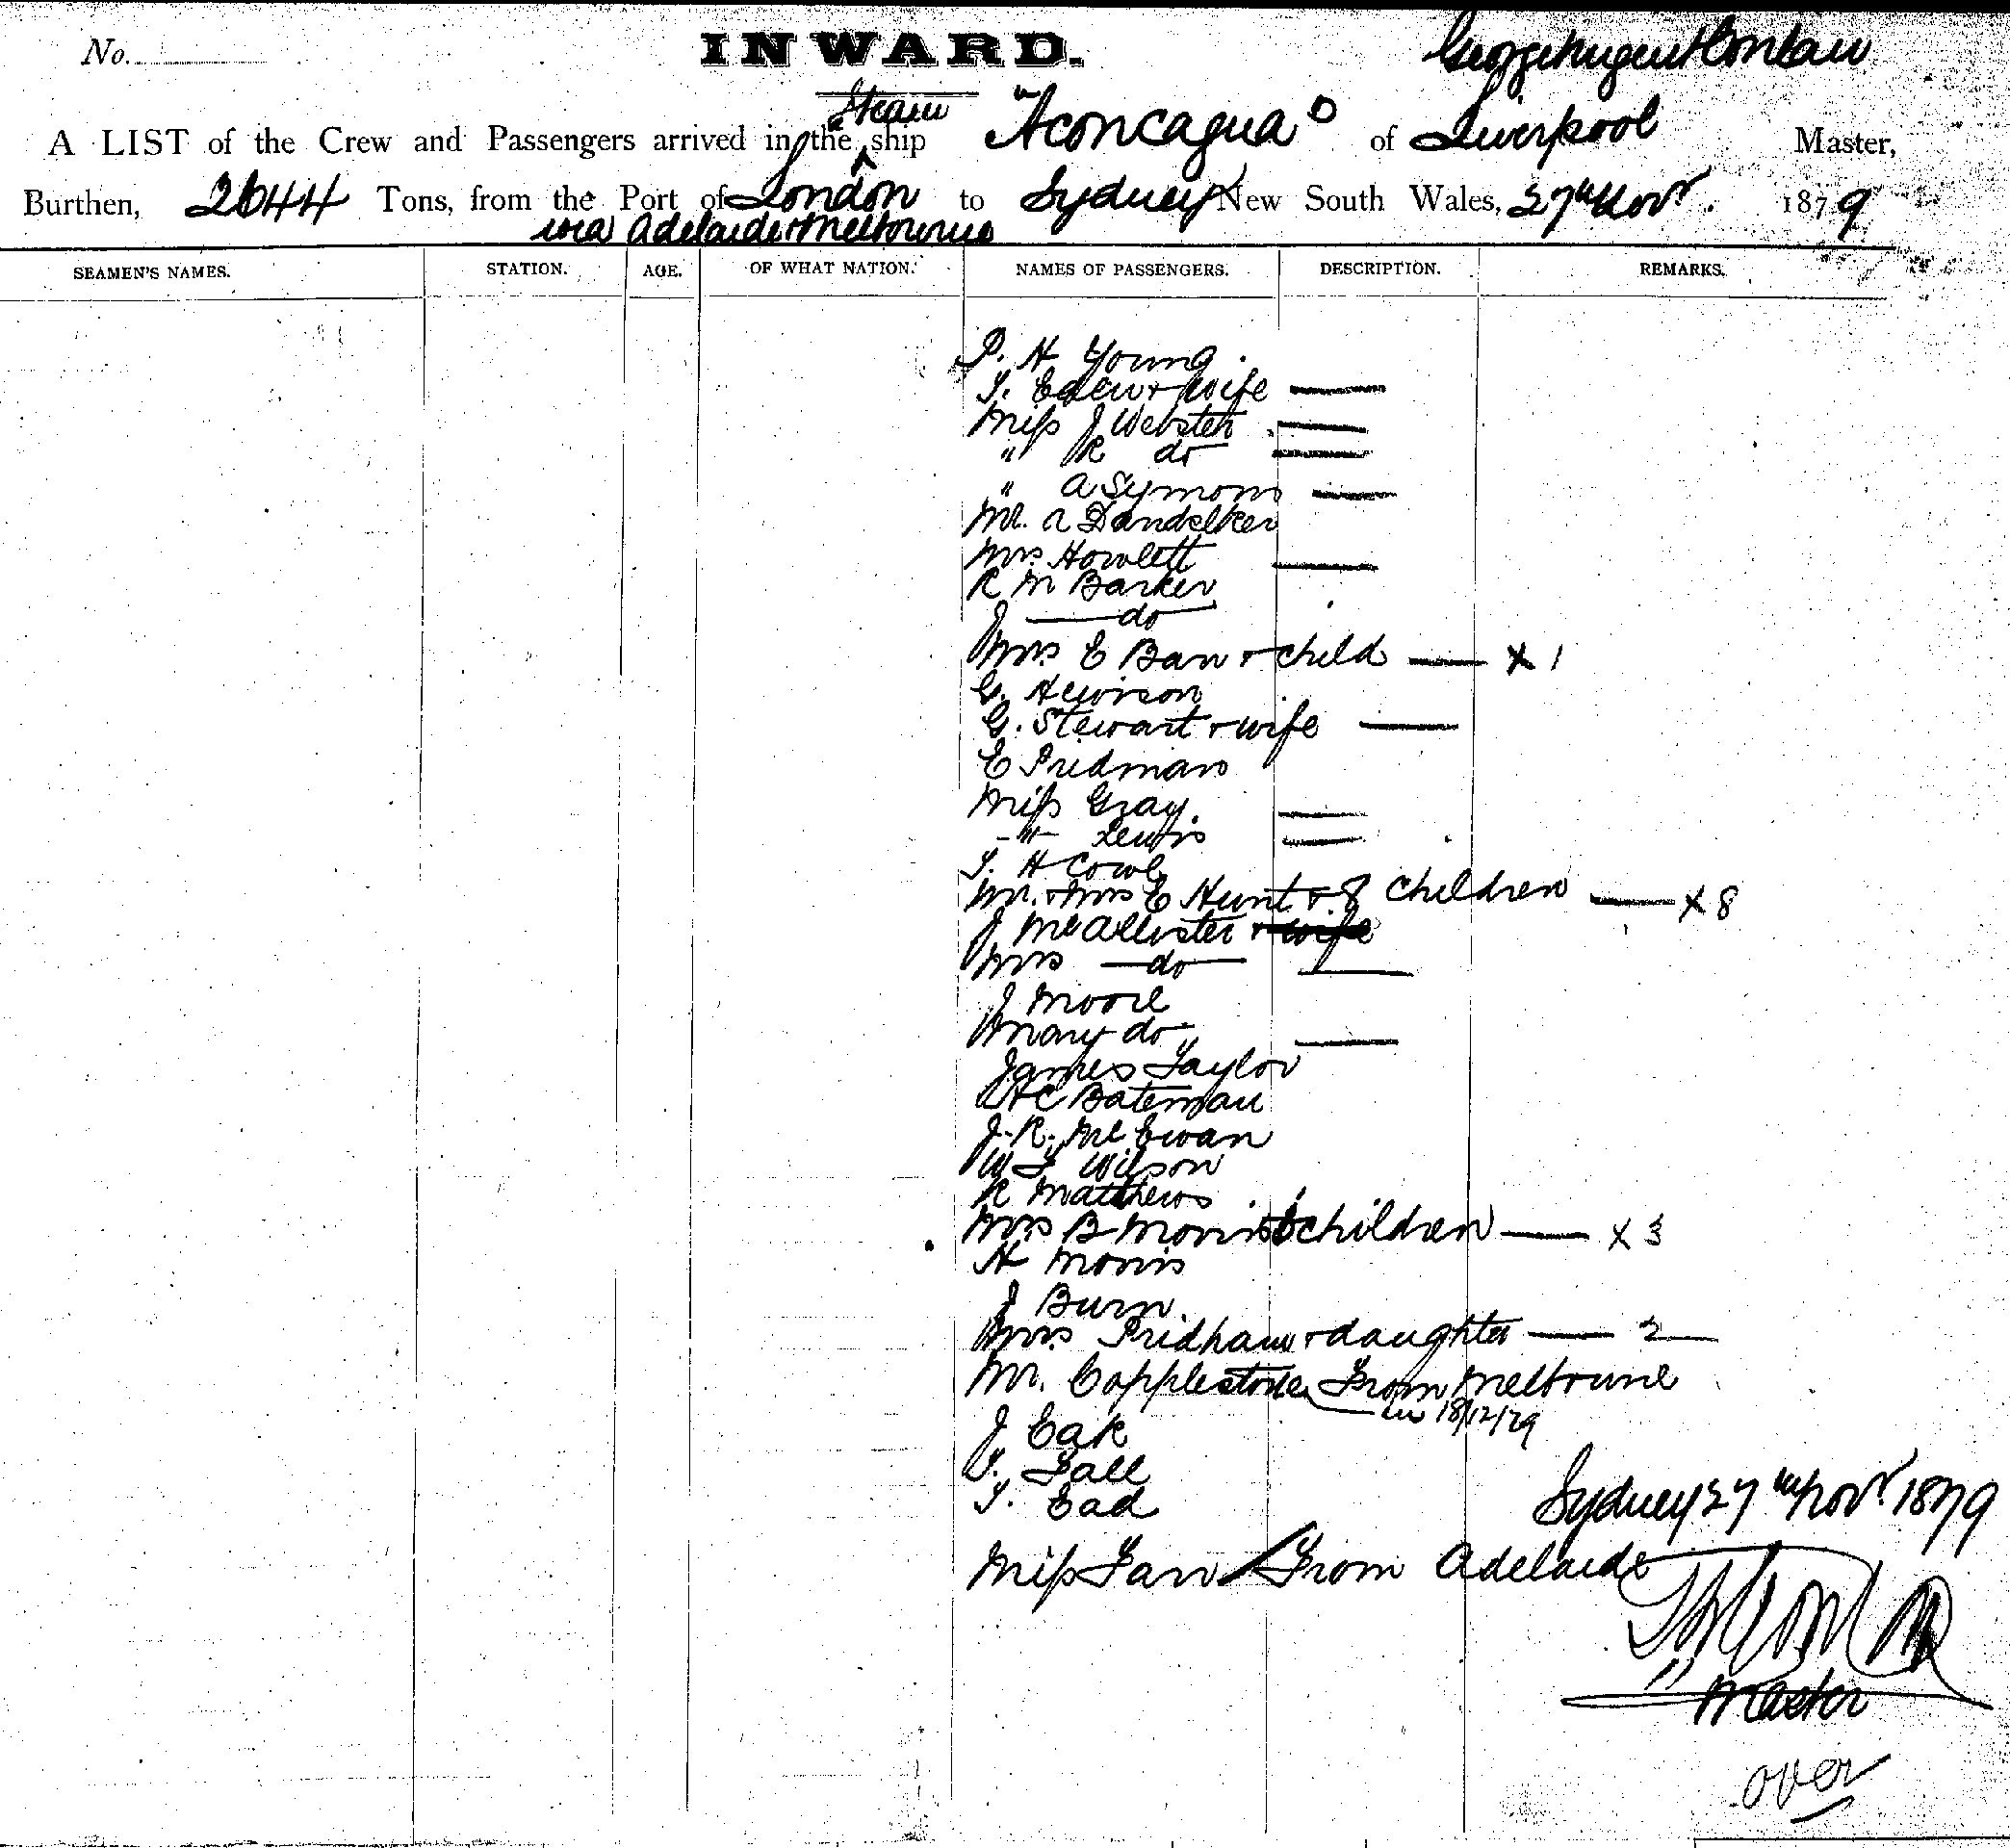 No.
INWARD.
George Nugent Conlan
A LIST of the Crew and Passengers arrived in the Steam ship "Aconcagua" of Liverpool Master,
Burthen, 2644 Tons, from the Port of London to Sydney New South Wales, 27th Novr. 1879
via Adelaide & Melbourne
SEAMEN'S NAMES. STATION. AGE. OF WHAT NATION. NAMES OF PASSENGERS. DESCRIPTION. REMARKS.
P. H Young
T. & wife
Miss J Webster
" R do
" A Symons
Mr. A Dandelker
Mrs. Howlett
R M Barker
J do
Mrs. E Barr & child X 1
G. Hewison
G. Stewart & wife
E Pridman
Miss Gray
-"- Lewis
T. H Cowl
Mr. & Mrs E Hunt & 8 children X 8
J McAllister & wife
Mrs do
J Moore
Mary do
James Taylor
H C Bateman
J. R. Mc Ewan
W Wilson
R Matthews
Mrs B Morris children X 3
H Morris
J Burn
Mrs Pridham & daughter 2
Mr. Copplestone From Melbourne
18/12/79
J Eak
Fall
T. Ead
Sydney 27th Novr. 1879
Miss Farr From Adelaide
Master
over